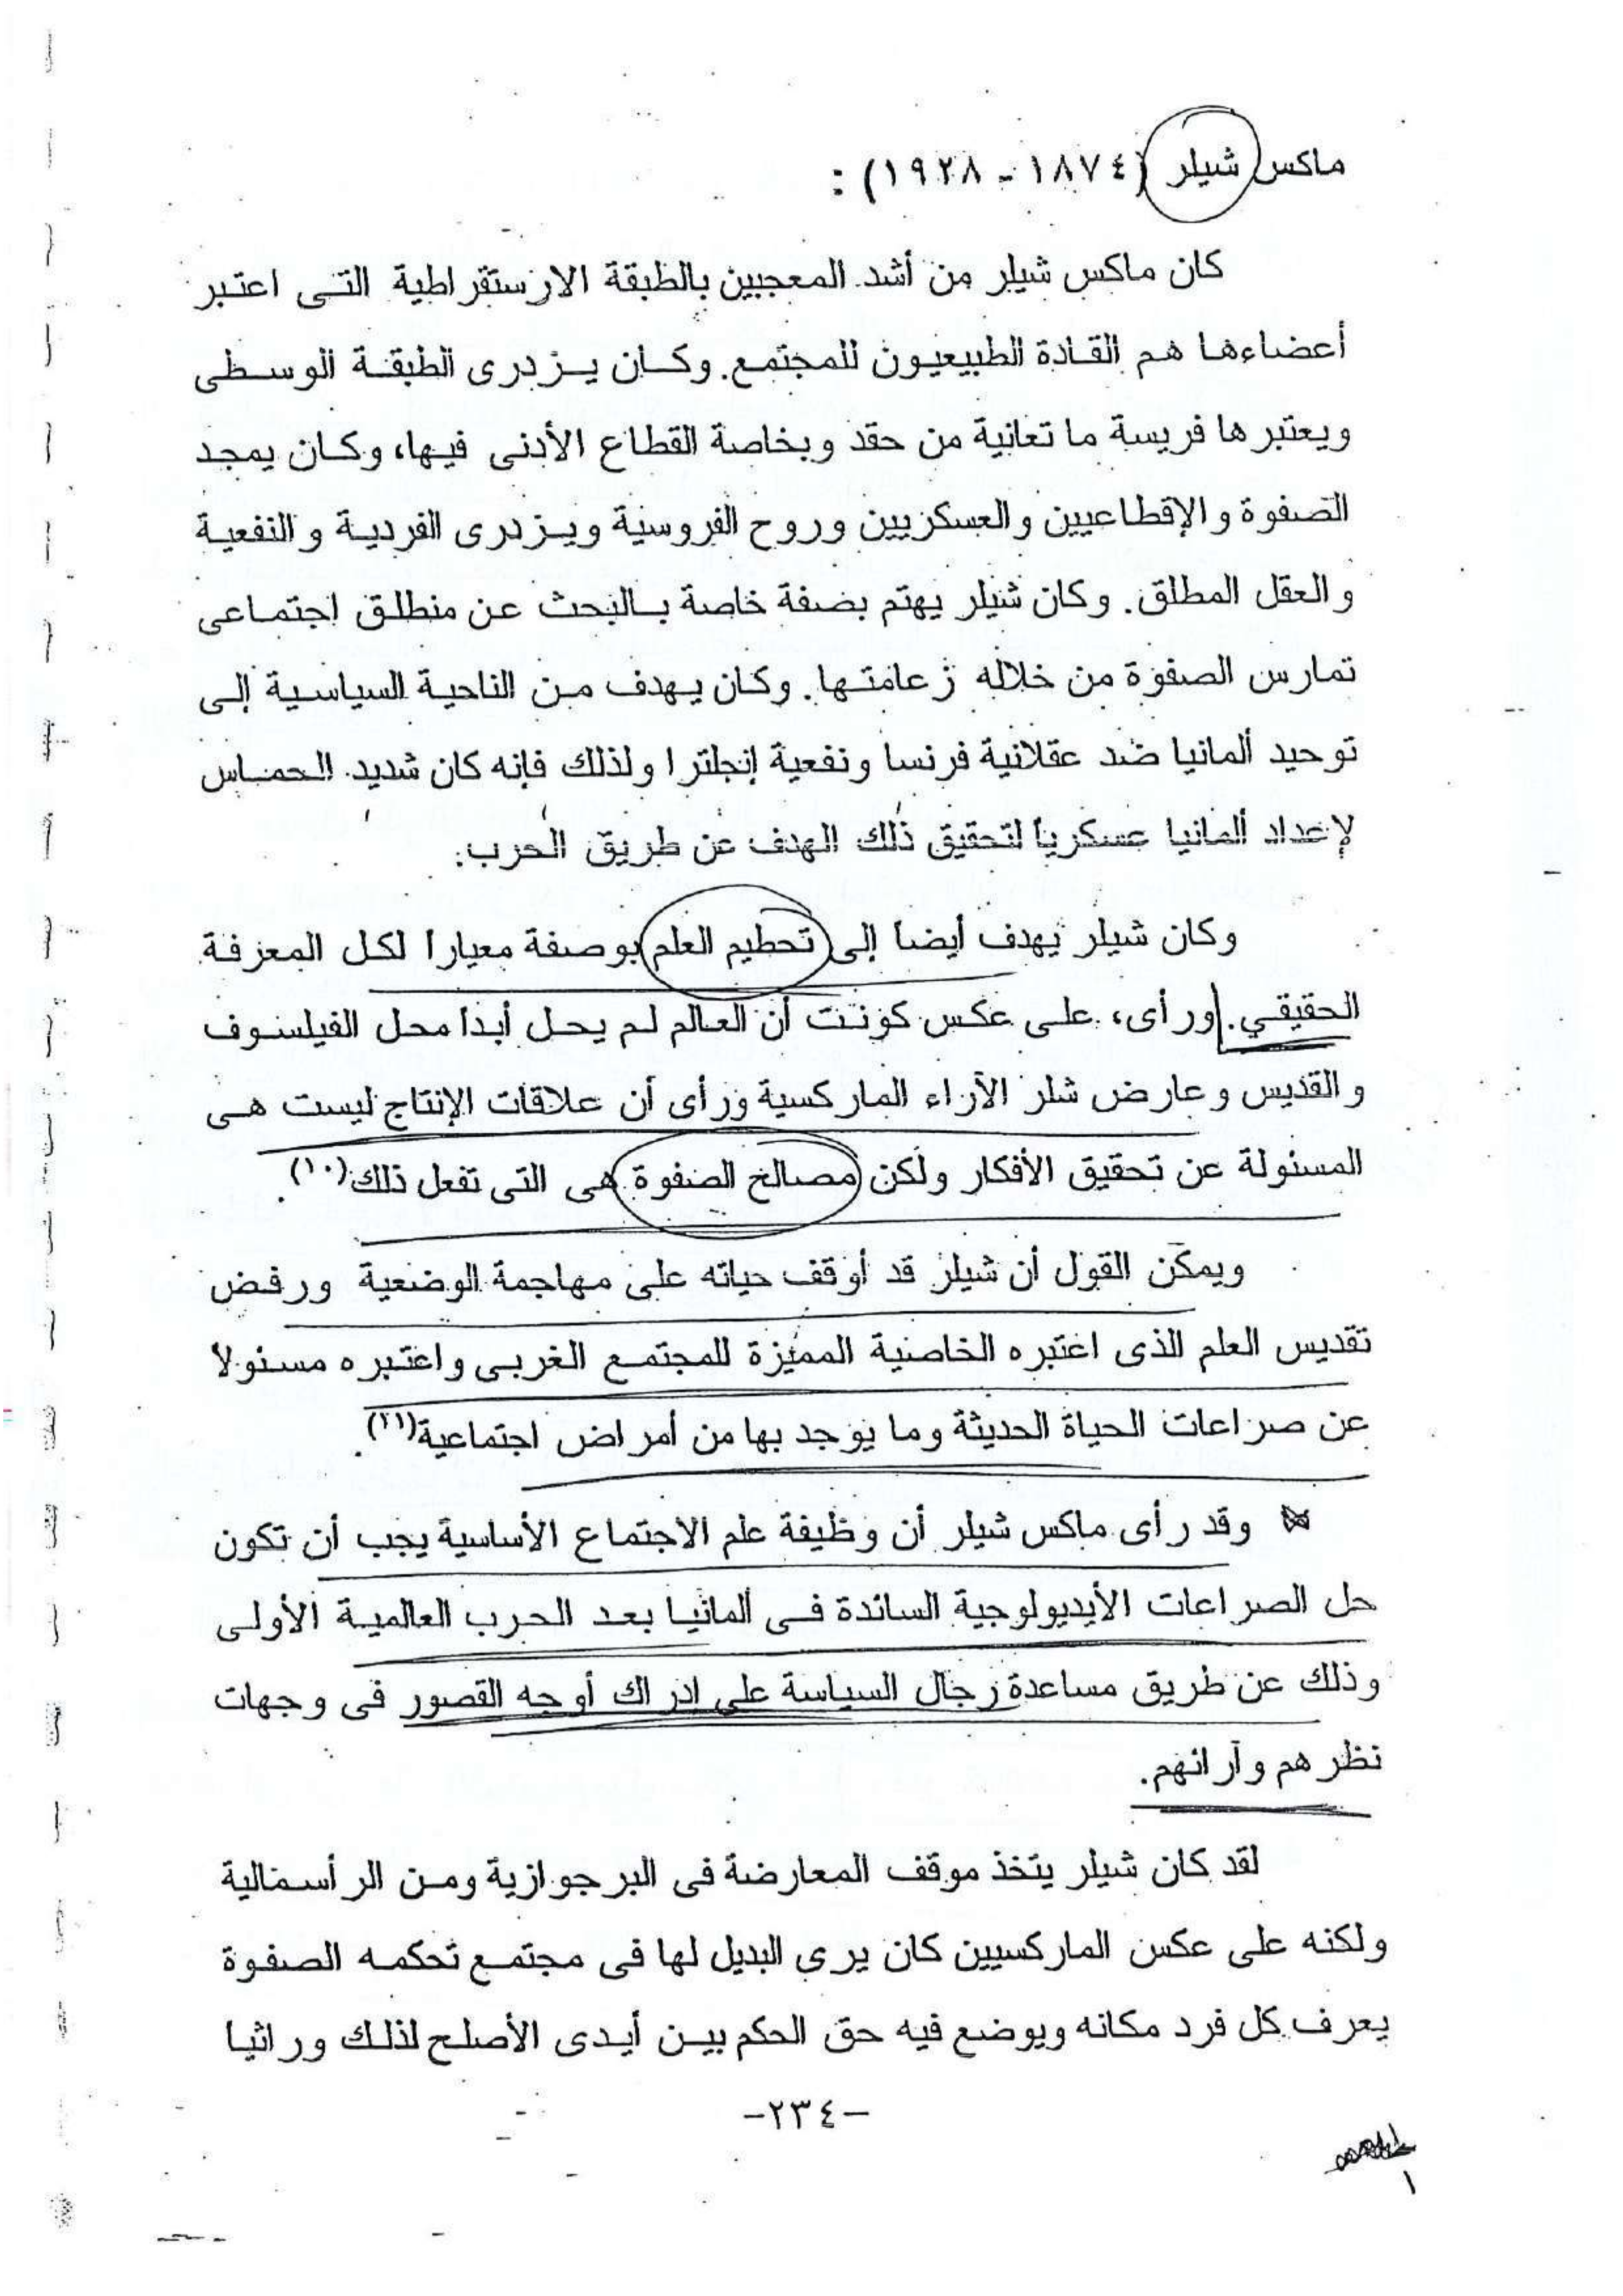 ماكس شيلر (١٨٧٤ - ١٩٢٨) :
كان ماكس شيلر من أشد المعجبين بالطبقة الارستقراطية التى اعتبر
أعضاءها هم القادة الطبيعيون للمجتمع. وكان يزدرى الطبقة الوسطى
ويعتبرها فريسة ما تعانية من حقد وبخاصة القطاع الأدنى فيها، وكان يمجد
الصفوة والإقطاعيين والعسكريين وروح الفروسية ويزدرى الفردية والنفعية
والعقل المطلق. وكان شيلر يهتم بصفة خاصة بالبحث عن منطلق اجتماعى
تمارس الصفوة من خلاله زعامتها. وكان يهدف من الناحية السياسية إلى
توحيد ألمانيا ضد عقلانية فرنسا ونفعية إنجلترا ولذلك فإنه كان شديد الحماس
لإعداد ألمانيا عسكريا لتحقيق ذلك الهدف عن طريق الحرب.
وكان شيلر يهدف أيضا إلى تحطيم العلم بوصفة معيارا لكل المعرفة
الحقيقي. ورأى، على عكس كونت أن العالم لم يحل أبدا محل الفيلسوف
والقديس وعارض شلر الآراء الماركسية ورأى أن علاقات الإنتاج ليست هى
المسئولة عن تحقيق الأفكار ولكن مصالح الصفوة هى التى تفعل ذلك(١٠).
ويمكن القول أن شيلر قد أوقف حياته على مهاجمة الوضعية ورفض
تقديس العلم الذى اعتبره الخاصية المميزة للمجتمع الغربى واعتبره مسئولا
عن صراعات الحياة الحديثة وما يوجد بها من أمراض اجتماعية(١١).
وقد رأى ماكس شيلر أن وظيفة علم الاجتماع الأساسية يجب أن تكون
حل الصراعات الأيديولوجية السائدة فى ألمانيا بعد الحرب العالمية الأولى
وذلك عن طريق مساعدة رجال السياسة على ادراك أوجه القصور فى وجهات
نظرهم وآرائهم.
لقد كان شيلر يتخذ موقف المعارضة فى البرجوازية ومن الرأسمالية
ولكنه على عكس الماركسيين كان يرى البديل لها فى مجتمع تحكمه الصفوة
يعرف كل فرد مكانه ويوضع فيه حق الحكم بين أيدى الأصلح لذلك وراثيا
-٢٣٤-
١